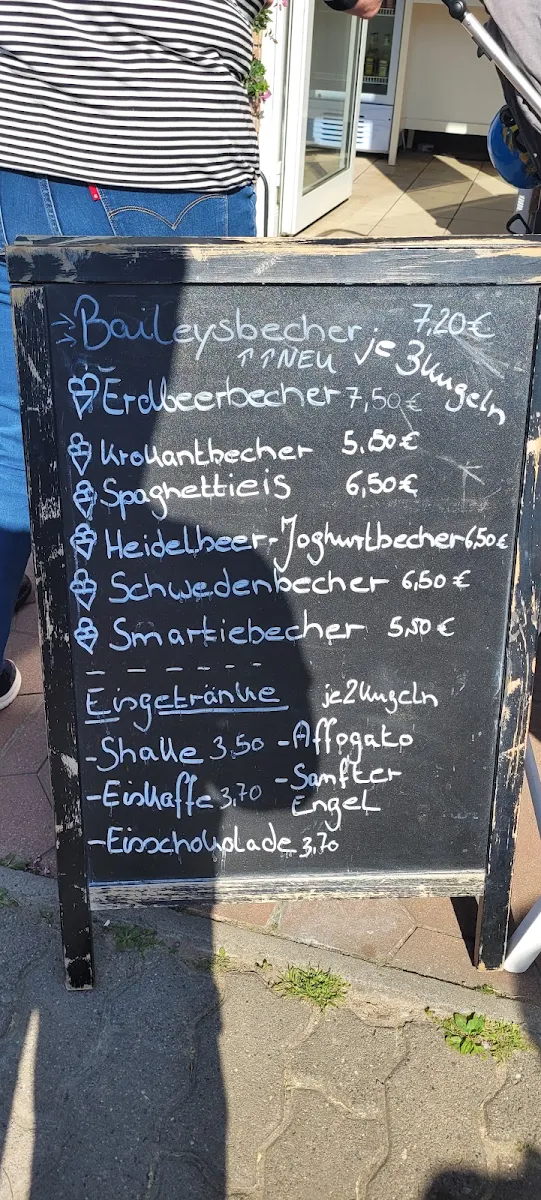 Baileysbecher 7,20€
↑↑NEU je 3Kugeln
Erdbeerbecher 7,50€
Krokantbecher 5,50€
Spaghettieis 6,50€
Heidelbeer-Joghurtbecher 6,50€
Schwedenbecher 6,50€
Smartiebecher 5,50€
Eisgetränke je 2Kugeln
-Shake 3,50 -Affogato
-Eiskaffe 3,70 -Sanfter
Engel
-Eisschokolade 3,70